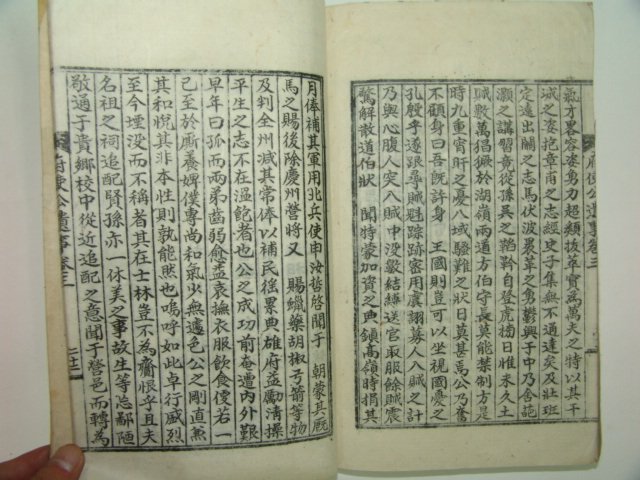 氣才畧容姿勇力超類拔萃實為萬夫之特以其干
城之姿抱章甫之志經史子集無不通達矣及壯班
定遠出關之志馬伏波裹革之勇欝興于中乃舍范
灝之講習竟從孫吳之韜鈐自登虎榜日惟未久土
賊數萬猖獗於湖嶺兩道方伯守長莫能禁制方是
時九重宵旰之憂八域騷難之狀日莫甚焉公乃奮
不顧身曰吾既許身 王國則豈可以坐視國憂之
孔殷乎遂跟尋賊蹤跡密用虞詡募人入賊之計
乃與心腹人突入賊中沒數結縛送官取服餘賊震
驚解散道伯狀 聞特蒙加資之典鎮高嶺時捐其
府使公遺事卷三
月俸補其軍用北兵使由汝哲啓聞于 朝蒙其厩
馬之賜後除慶州營將又 賜蠟藥胡椒弓箭等物
及判全州減其常俸以補民徭累典雄府益勵清操
平生之志不在溫飽者也公之成功前奄遭內外艱
早年曰孤而兩弟齒弱愈益哀撫衣服飲食便若一
己至於厮養婢僕專尚和氣少無遽色公之剛直兼
其和悅其非本性則孰能然也嗚呼如此卓行盛烈
至今堙沒而不稱者其在士林豈不為齎恨乎且夫
名祖之祠追配賢孫亦一休美之事故生等忘鄙陋
敬通于貴鄉校中從近追配之意聞于營邑而轉為
府使公遺事卷三